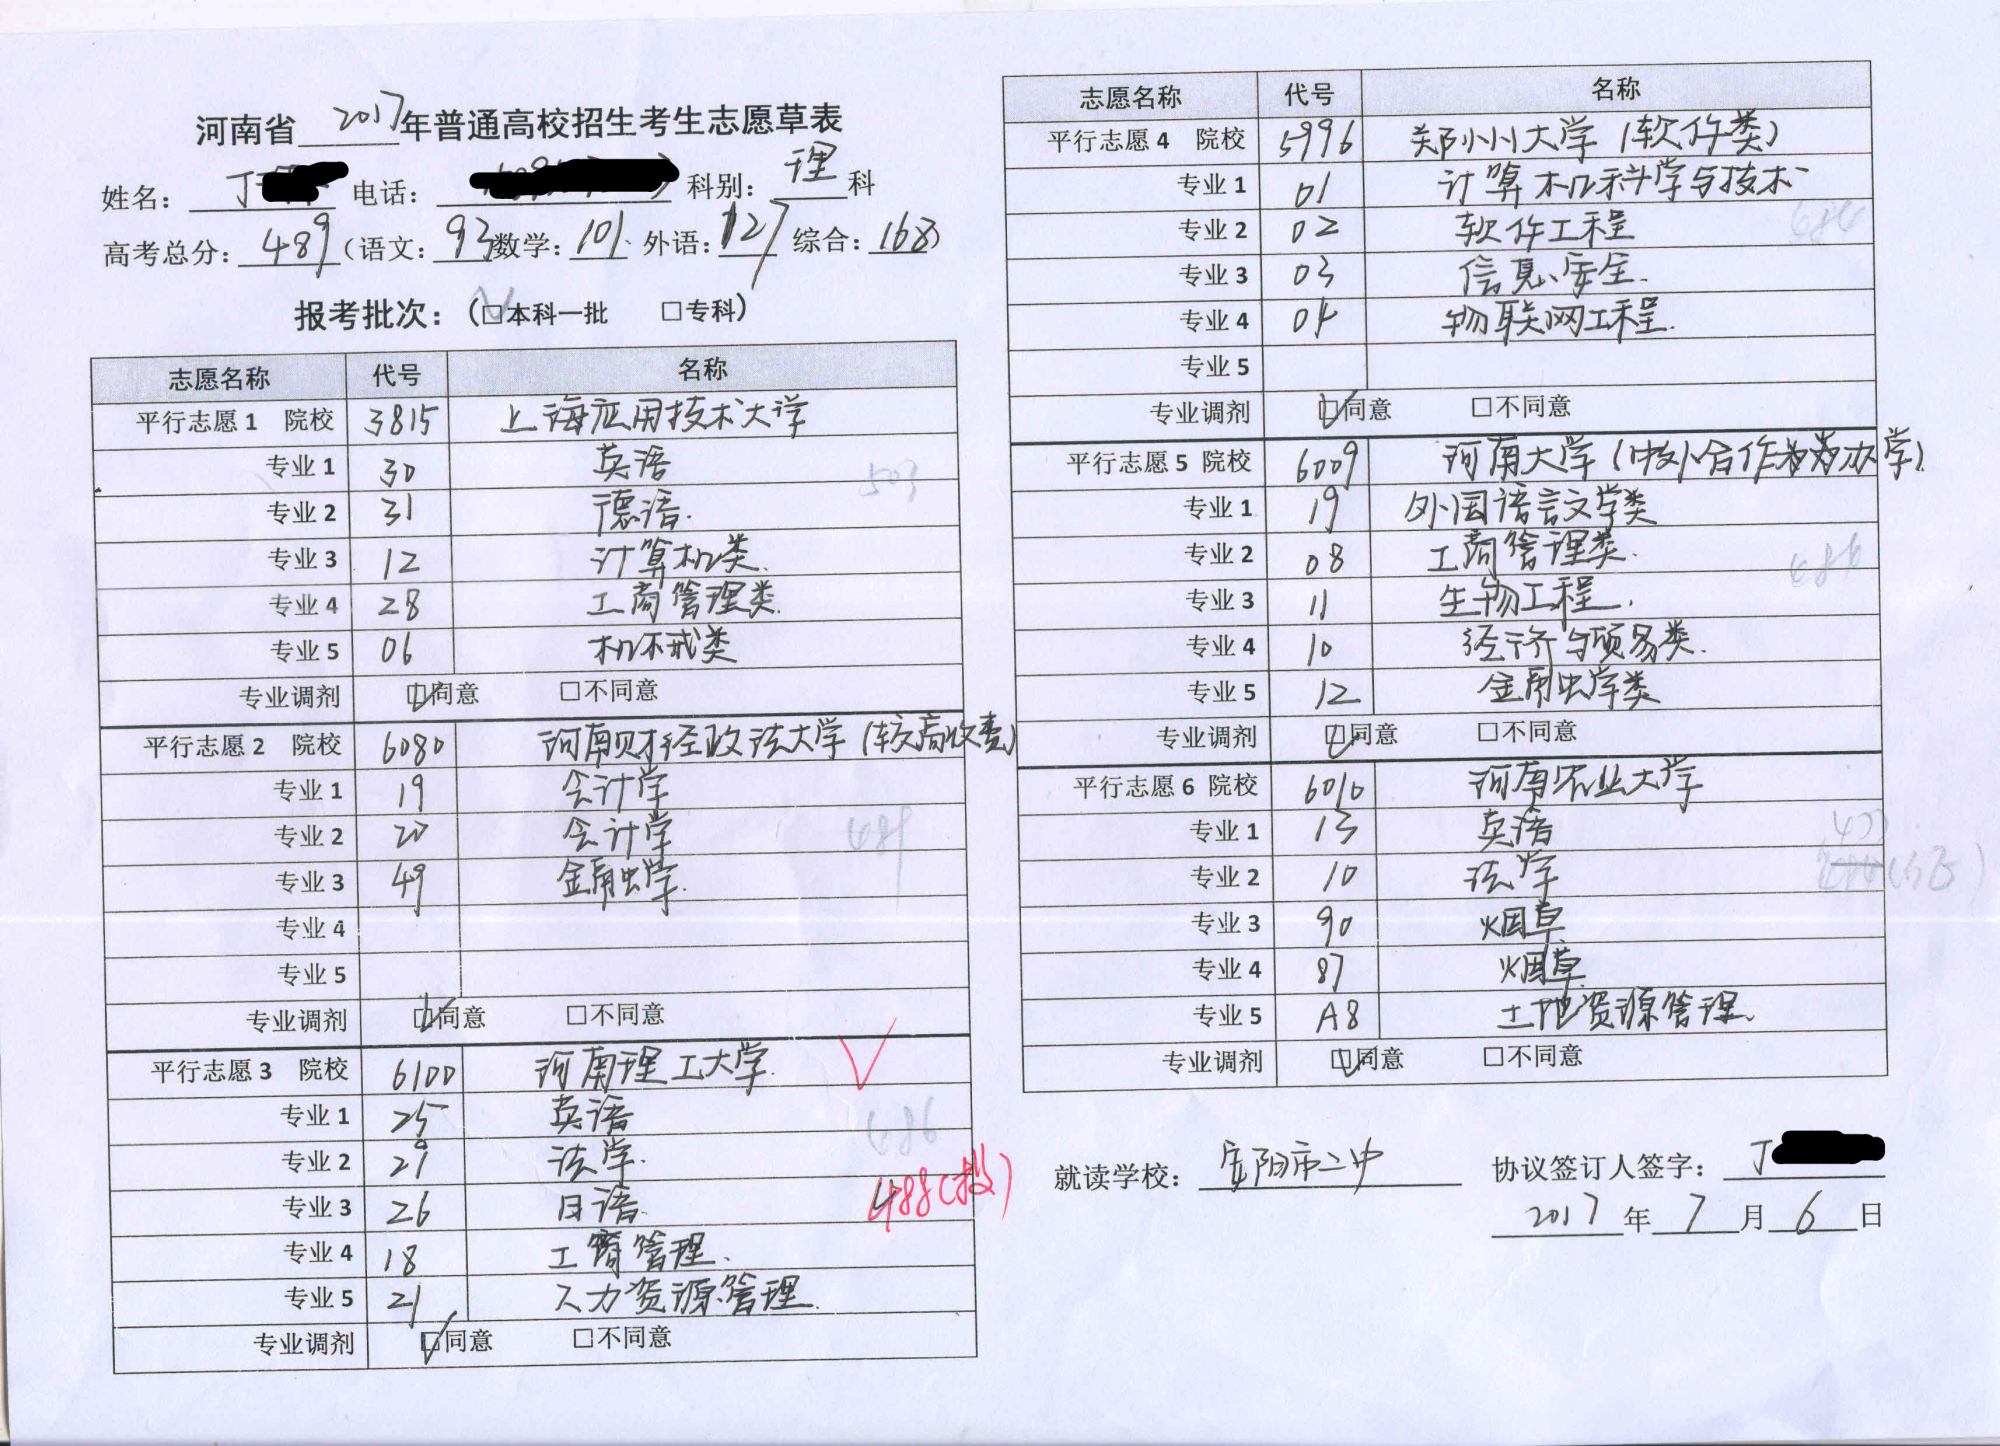 河南省 2017 年普通高校招生考生志愿草表
姓名： 丁 电话： 科别： 理 科
高考总分： 489 (语文： 93 数学： 101 外语： 127 综合： 168)
报考批次：(☑本科一批 □专科)
志愿名称 代号 名称
平行志愿1 院校 3815 上海应用技术大学
专业1 30 英语
503
专业2 31 德语.
专业3 12 计算机类.
专业4 28 工商管理类.
专业5 06 机械类
专业调剂 ☑同意 □不同意
平行志愿2 院校 6080 河南财经政法大学(较高收费)
专业1 19 会计学
专业2 20 会计学
489
专业3 49 金融学.
专业4
专业5
专业调剂 ☑同意 □不同意
平行志愿3 院校 6100 河南理工大学. √
专业1 25 英语
486
专业2 29 法学.
专业3 26 日语. 488(投)
专业4 18 工商管理.
专业5 21 人力资源管理.
专业调剂 ☑同意 □不同意
志愿名称 代号 名称
平行志愿4 院校 5996 郑州大学(软件类)
专业1 01 计算机科学与技术
专业2 02 软件工程
专业3 03 信息安全.
专业4 04 物联网工程.
专业5
专业调剂 ☑同意 □不同意
平行志愿5 院校 6009 河南大学(中外合作办学)
专业1 19 外国语言文学类
专业2 08 工商管理类.
486
专业3 11 生物工程.
专业4 10 经济与贸易类.
专业5 12 金融学类
专业调剂 ☑同意 □不同意
平行志愿6 院校 6010 河南农业大学
专业1 13 英语
专业2 10 法学
专业3 90 烟草
专业4 87 烟草
专业5 A8 土地资源管理.
专业调剂 ☑同意 □不同意
就读学校： 阳市二中 协议签订人签字： 丁
2017 年 7 月 6 日